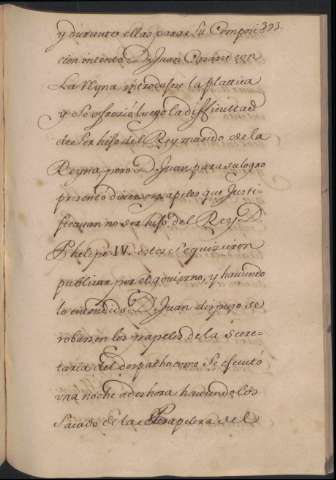 y durante ellas para su Compoci 393.
cion intentó D. Juan Casarse con
La Reyna introdusese la platica
y se ofreció luego la difficultad
de ser hijo del Rey marido de la
Reyna, pero D. Juan para su logro
presento dixeron papeles que justi
ficauan no ser hijo del Rey D.
Phelipe IV. estos se quisieron
publicar por el gouierno, y hauiendo
lo entendido D. Juan dispuso se
robasen los papeles de la secre-
taria del despacho como se executó
una noche a deshora hauiendolos
sacado de la Papelera del